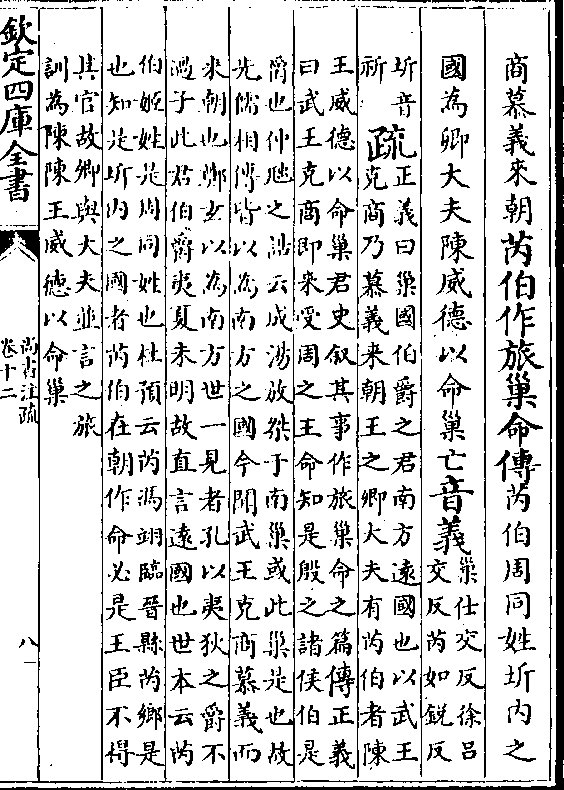 商慕義來朝芮伯作旅巢命傳芮伯周同姓圻内之
國為卿大夫陳威德以命巢亡音義巢仕交反徐吕
交反芮如鋭反
圻音
祈疏正義曰巢國伯爵之君南方遠國也以武王
克商乃慕義来朝王之卿大夫有芮伯者陳
王威德以命巢君史叙其事作旅巢命之篇傳正義
曰武王克商即来受周之王命知是殷之諸侯伯是
爵也仲虺之誥云成湯放桀于南巢或此巢是也故
先儒相傳皆以為南方之國今聞武王克商慕義而
来朝也鄭玄以為南方世一見者孔以夷狄之爵不
過子此君伯爵夷夏未明故直言遠國也世本云芮
伯姬姓是周同姓也杜預云芮馮翊臨晉縣芮鄉是
也知是圻内之國者芮伯在朝作命必是王臣不得
其官故卿與大夫並言之旅
訓為陳陳王威德以命巢
欽定四庫全書
尚書注疏
卷十二
八